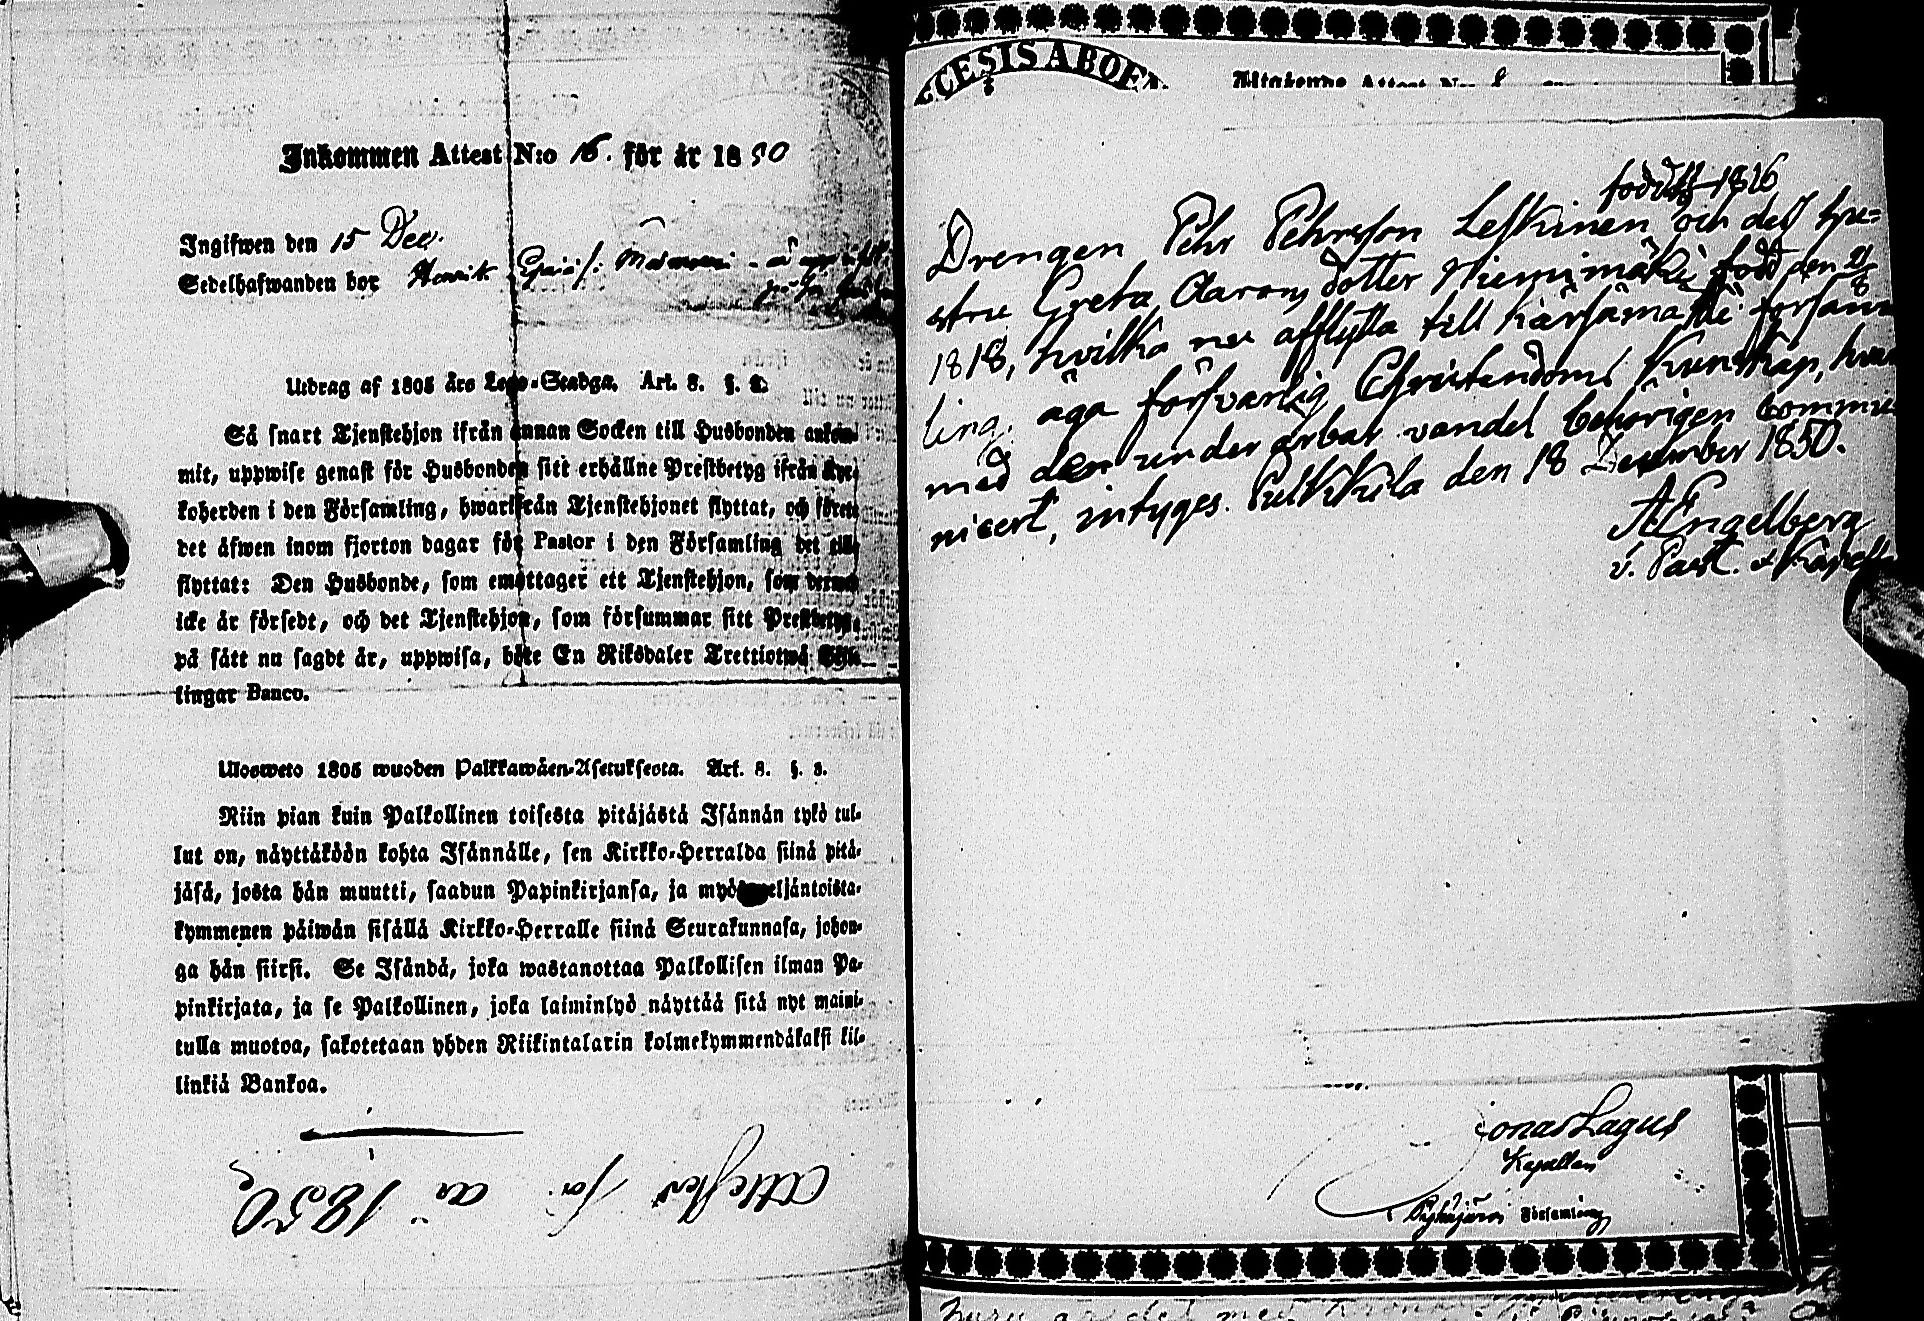 Inkommen Attest N:o 16. för år 1850
Ingifwen den 15 Dec.
Sedelhafwanden bor Henrik
Utdrag af 1805 års Lego-Stadga. Art. 8. §.
Så snart Tjenstehjon ifrån annan Socken till Husbonden ankom-
mit, uppwise genast för Husbonden sitt erhållne Prestbetyg ifrån Kyr-
koherden i den Församling, hwarifrån Tjenstehjonet flyttat, och förete
det äfwen inom fjorton dagar för Pastor i den Församling det till-
flyttat: Den Husbonde, som emottager ett Tjenstehjon, som dermed
icke är försedt, och det Tjenstehjon, som försummar sitt Prestbetyg,
på sätt nu sagdt är, uppwisa, böte En Riksdaler Trettiotwå Skil-
lingar Banco.
Ulosweto 1805 wuoden Palkkawäen-Asetuksesta. Art. 8. §. 3.
Niin pian kuin Palkollinen toisesta pitäjästä Isännän tykö tul-
lut on, näyttäköön kohta Isännälle, sen Kirkko-Herralda siinä pitä-
jäsä, josta hän muutti, saadun Papinkirjansa, ja myös neljäntoista-
kymmenen päiwän sisällä Kirkko-Herralle siinä Seurakunnasa, johon-
ga hän siirsi. Se Isändä, joka wastanottaa Palkollisen ilman Pa-
pinkirjata, ja se Palkollinen, joka laiminlyö näyttää sitä nyt maini-
tulla muotoa, sakotetaan yhden Riikintalarin kolmekymmendäkaksi kil-
linkiä Bankoa.
Attester för år 1850
CESIS ABOE
Attest N:o 8
född 1826
Drengen Pehr Pehrsson Leskinen och dess hu-
stru Greta Aarons dotter Niemimäki född den 21/8
1818, hvilka nu afflytta till Kärsämäki församm
ling, äga försvarlig Christendoms Kunskap, hvar
med den under ärbar vandel behörigen commu
nicert, intyges. Pulkkila den 18 December 1850.
A Engelberg
v. Past. & Kapell
Jonas Lagus
Kapellan
Pyhäjärvi Församling